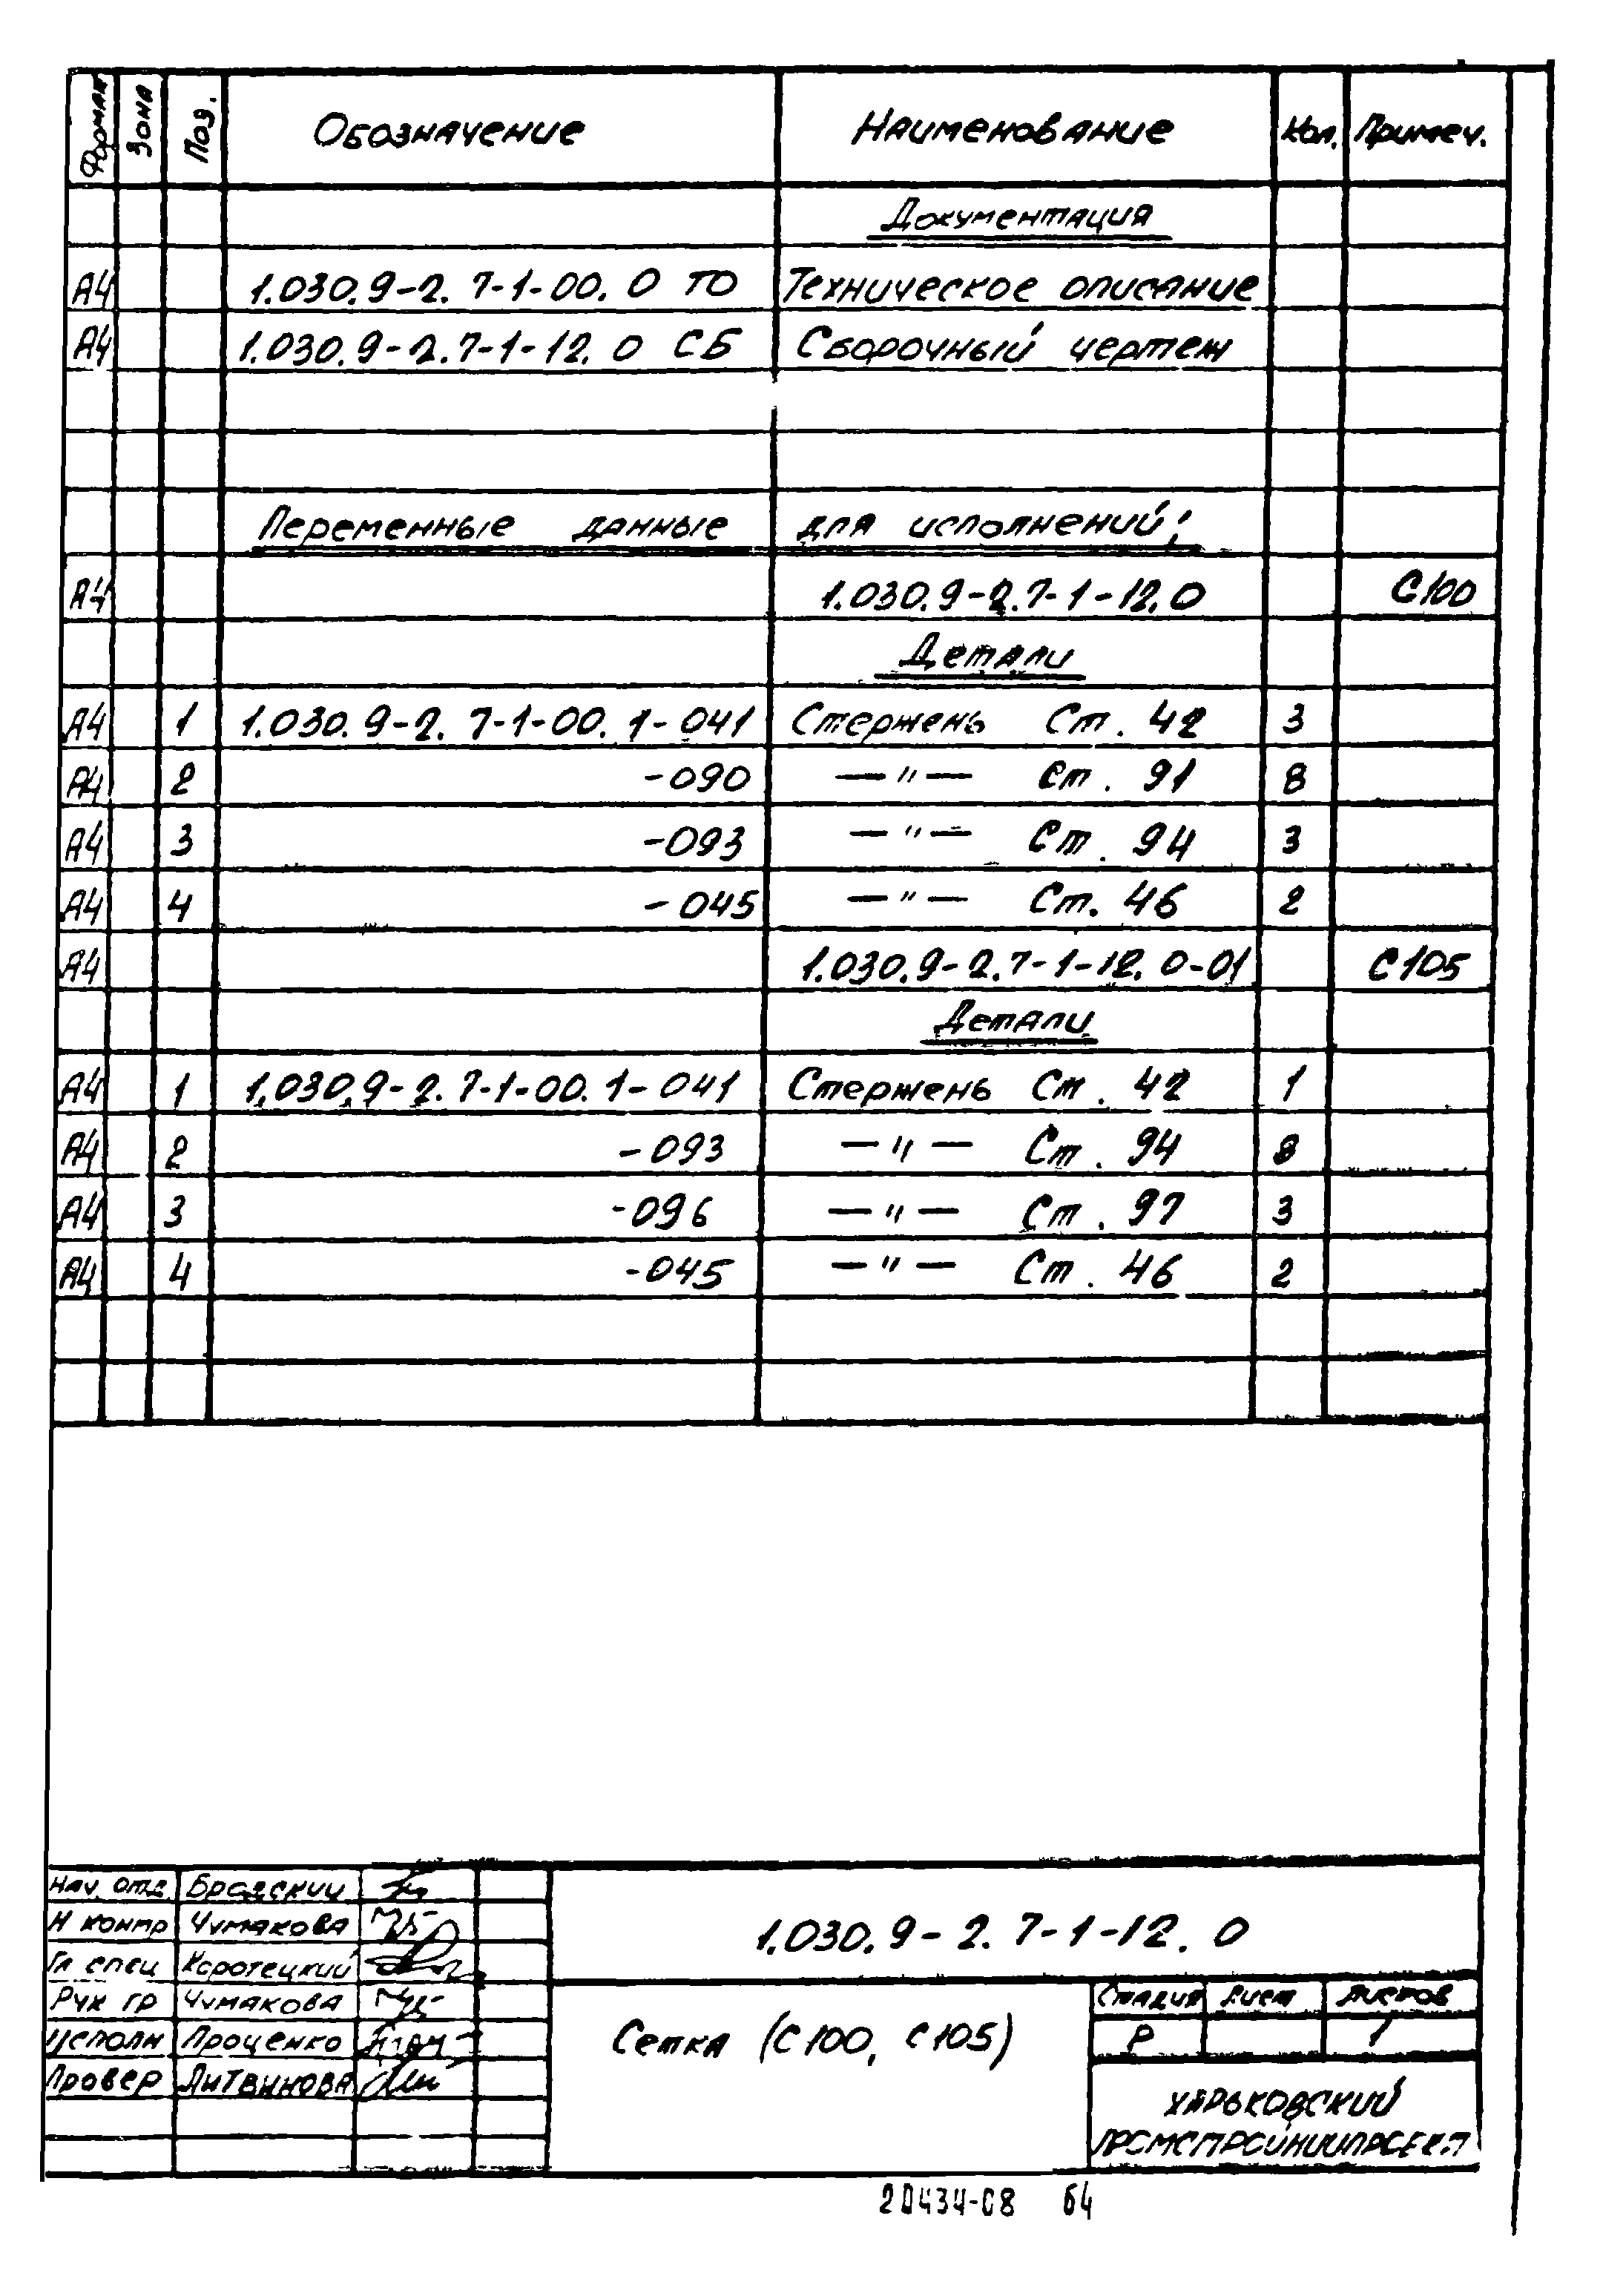 Формат Зона Поз. Обозначение Наименование Кол. Примеч.
Документация
А4 1.030.9-2. 7-1-00. 0 ТО Техническое описание
А4 1.030.9-2.7-1-12. 0 СБ Сборочный чертеж
Переменные данные для исполнений:
А4 1.030.9-2.7-1-12.0 С100
Детали
А4 1 1.030.9-2. 7-1-00. 1-041 Стержень Ст. 42 3
А4 2 -090 —"— Ст. 91 8
А4 3 -093 —"— Ст. 94 3
А4 4 -045 —"— Ст. 46 2
А4 1.030.9-2.7-1-12. 0-01 С105
Детали
А4 1 1.030.9-2. 7-1-00. 1-041 Стержень Ст. 42 1
А4 2 -093 —"— Ст. 94 8
А4 3 -096 —"— Ст. 97 3
А4 4 -045 —"— Ст. 46 2
Нач. отд. Бродский
Н контр Чумакова
Гл спец Коротецкий
Рук гр Чумакова
Исполн Проценко
Провер Литвинова
1.030.9-2. 7-1-12. 0
Сетка (С100, С105)
Стадия Лист Листов
Р 1
ХАРЬКОВСКИЙ
ПРОМСТРОЙНИИПРОЕКТ
20434-08 64